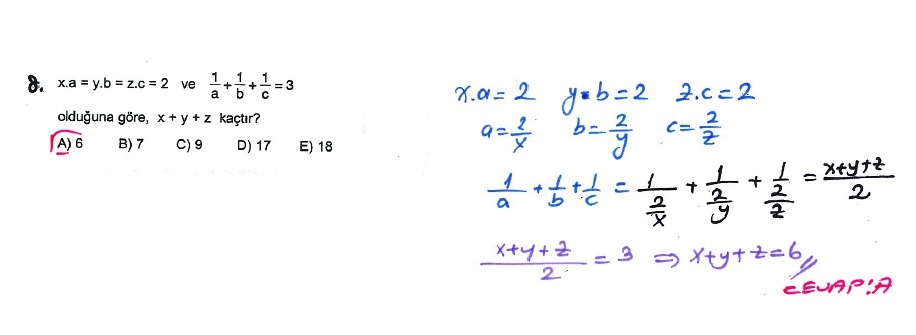 8. x.a = y.b = z.c = 2 ve 1/a + 1/b + 1/c = 3
olduğuna göre, x + y + z kaçtır?
A) 6 B) 7 C) 9 D) 17 E) 18
x.a = 2 y.b = 2 z.c = 2
a = 2/x b = 2/y c = 2/z
1/a + 1/b + 1/c = 1/(2/x) + 1/(2/y) + 1/(2/z) = (x+y+z)/2
(x+y+z)/2 = 3 ⇒ x+y+z = 6//
CEVAP:A